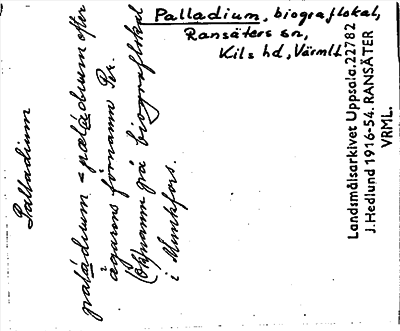 Palladium, biograflokal,
Ransäters sn,
Kils hd, Värml.
Palladium
paládium - pæládium efter
ägarens förnamn Per.
(Öknamn på biograflokal
i Munkfors.
Landsmålsarkivet Uppsala. 22782
J. Hedlund 1916-54. RANSÄTER
VRML.